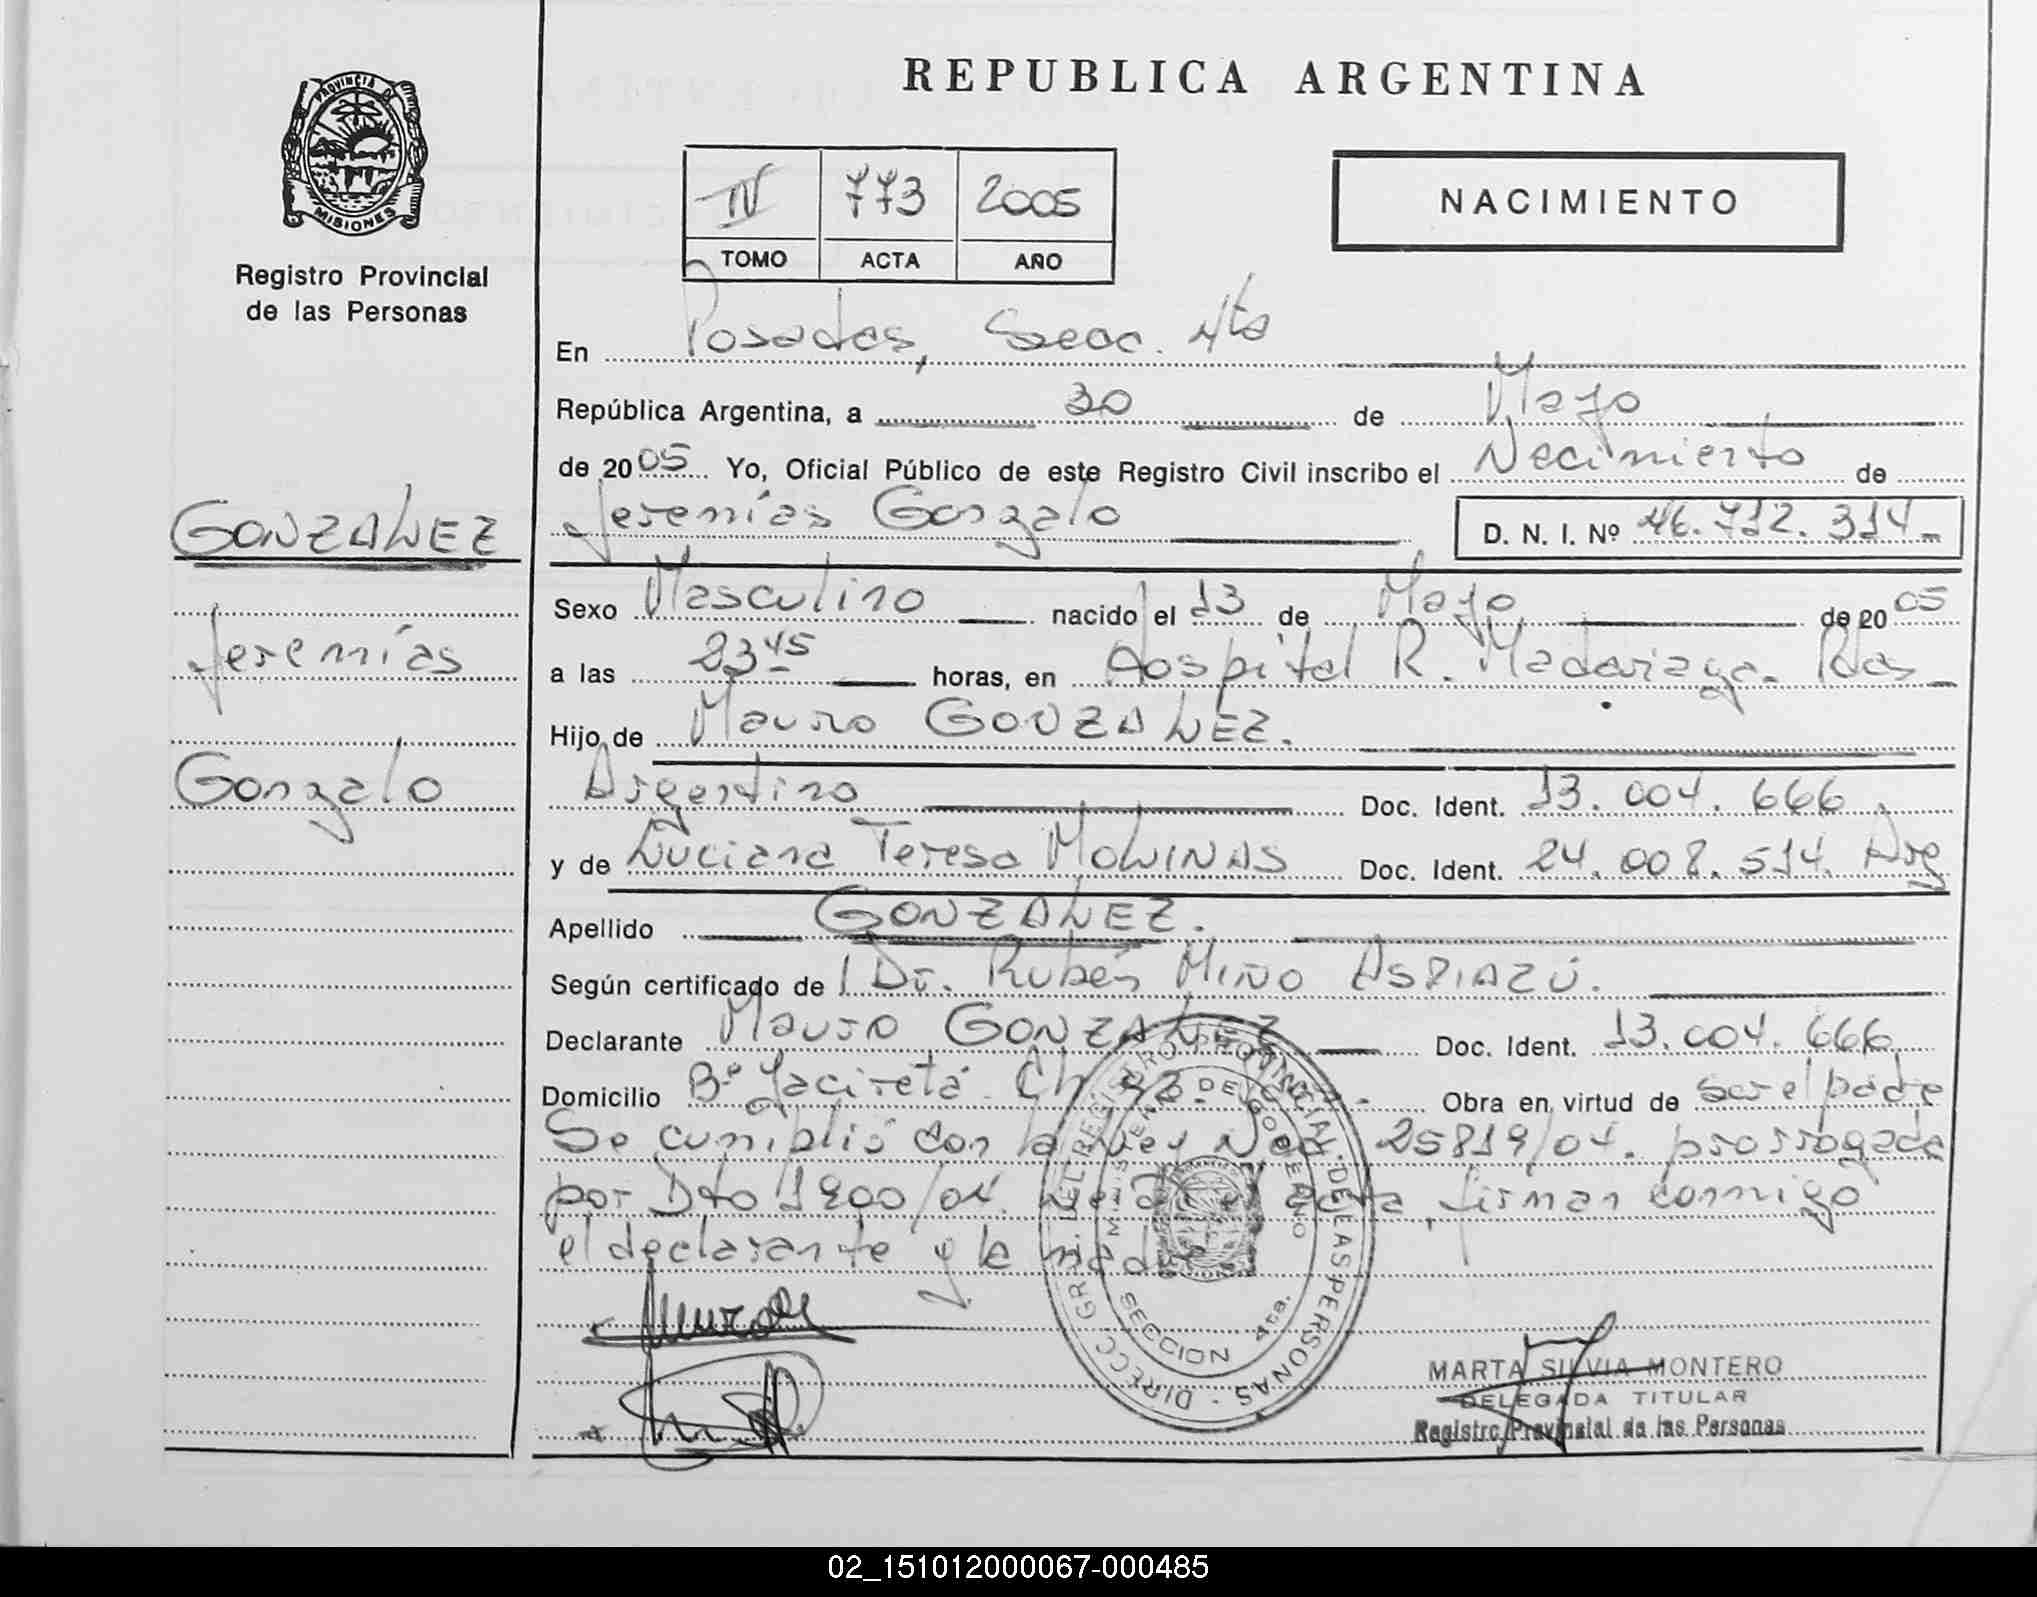 REPUBLICA ARGENTINA
PROVINCIA DE
MISIONES
Registro Provincial
de las Personas
IV 773 2005
TOMO ACTA AÑO
NACIMIENTO
En Posadas, Secc. 4ta
República Argentina, a 30 de Mayo
de 2005 Yo, Oficial Público de este Registro Civil inscribo el Nacimiento de
Jeremías Gonzalo D. N. I. Nº 46.712.314
GONZALEZ
Jeremías
Gonzalo
Sexo Masculino nacido el 13 de Mayo de 2005
a las 23 45 horas, en Hospital R. Madariaga. Pdas
Hijo de Mauro GONZALEZ.
Argentino Doc. Ident. 13.004.666
y de Luciana Teresa MOLINAS Doc. Ident. 24.008.514. Arg
Apellido GONZALEZ.
Según certificado de Dr. Rubén MIÑO ASPIAZÚ.
Declarante Mauro GONZALEZ Doc. Ident. 13.004.666
Domicilio Bº Yacireta Ch Obra en virtud de ser el padre
Se cumplió con la Ley Nac. 25819/04. prorrogada
por Dto 1900/04. Leída el acta, firman conmigo
el declarante y la madre
DIRECC GRL. DEL REGISTRO PROVINCIAL DE LAS PERSONAS
MINISTERIO DE GOBIERNO
SECCION 4ta.
MARTA SILVIA MONTERO
DELEGADA TITULAR
Registro Provincial de las Personas
02_151012000067-000485